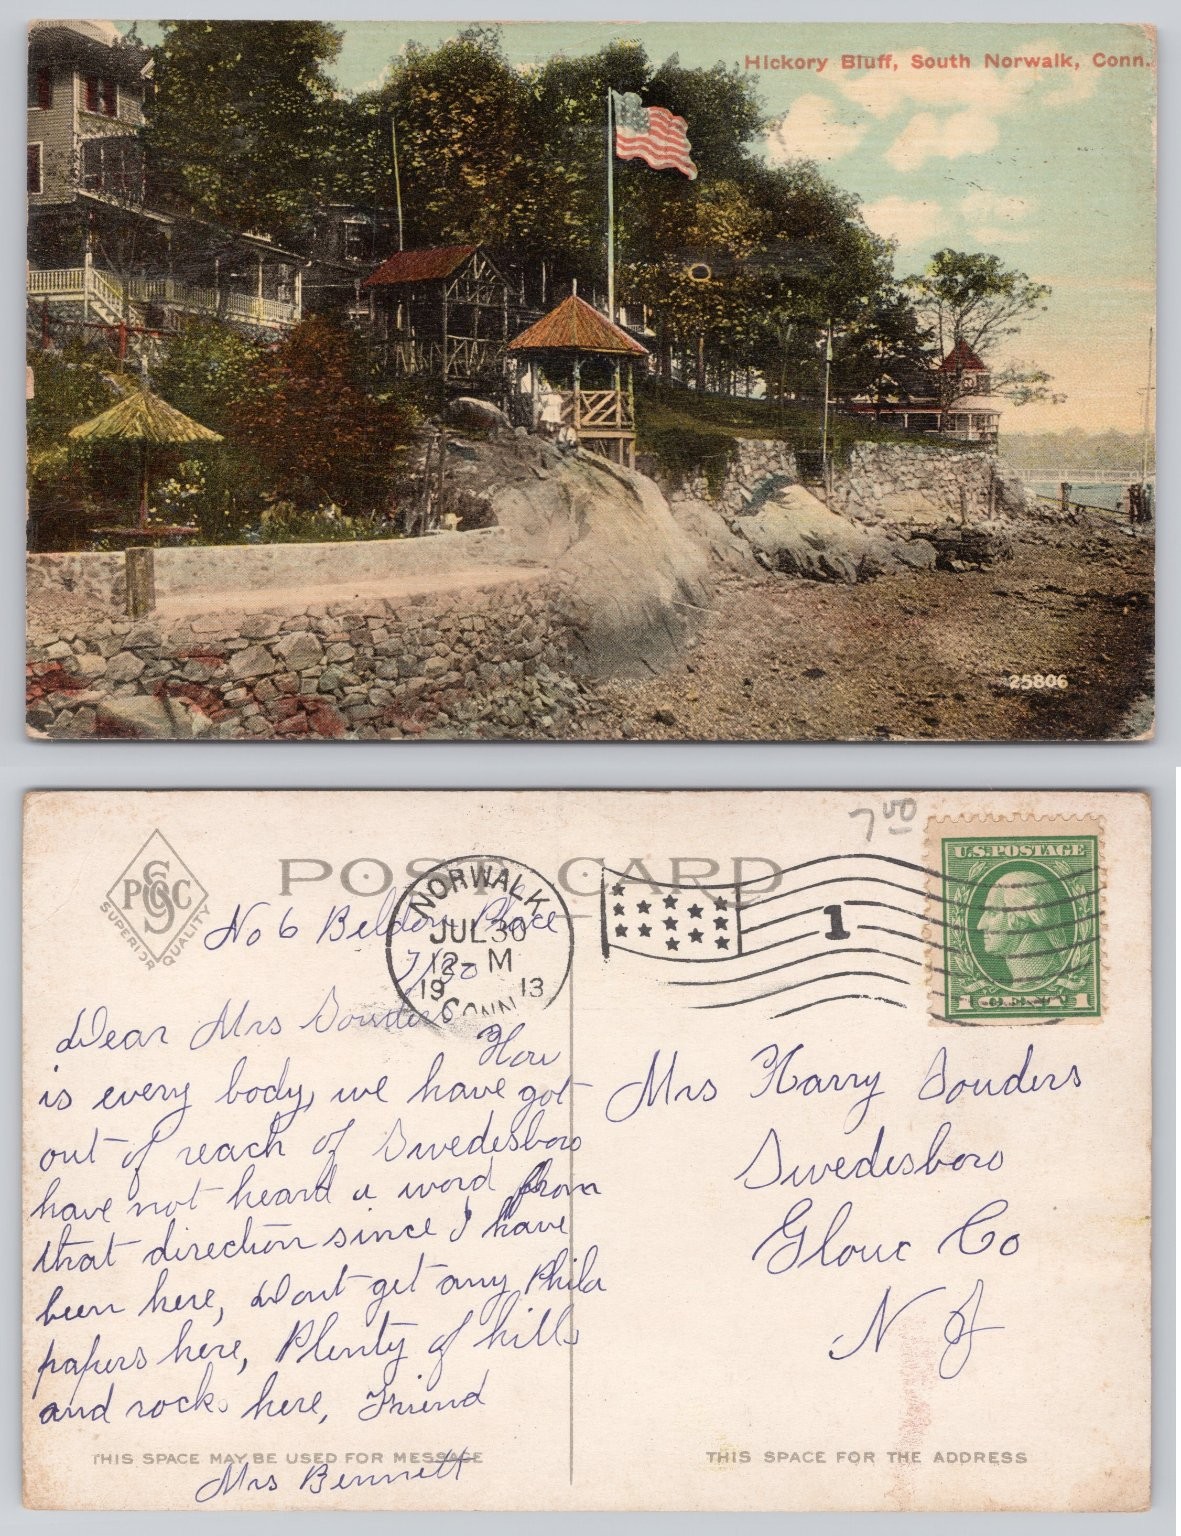 Hickory Bluff, South Norwalk, Conn.
25806
7 00
POST CARD
PSC
SUPERIOR QUALITY
NORWALK
JUL 30
12 - M
19 13
CONN.
1
U.S. POSTAGE
1 CENT 1
No 6 Belden Place
7/30
Dear Mrs Souders
How
is every body, we have got
out of reach of Swedesboro
have not heard a word from
that direction since I have
been here, Dont get any Phila
papers here, Plenty of hills
and rocks here, Friend
Mrs Bennett
THIS SPACE MAY BE USED FOR MESSAGE
Mrs Harry Souders
Swedesboro
Glouc Co
N J
THIS SPACE FOR THE ADDRESS